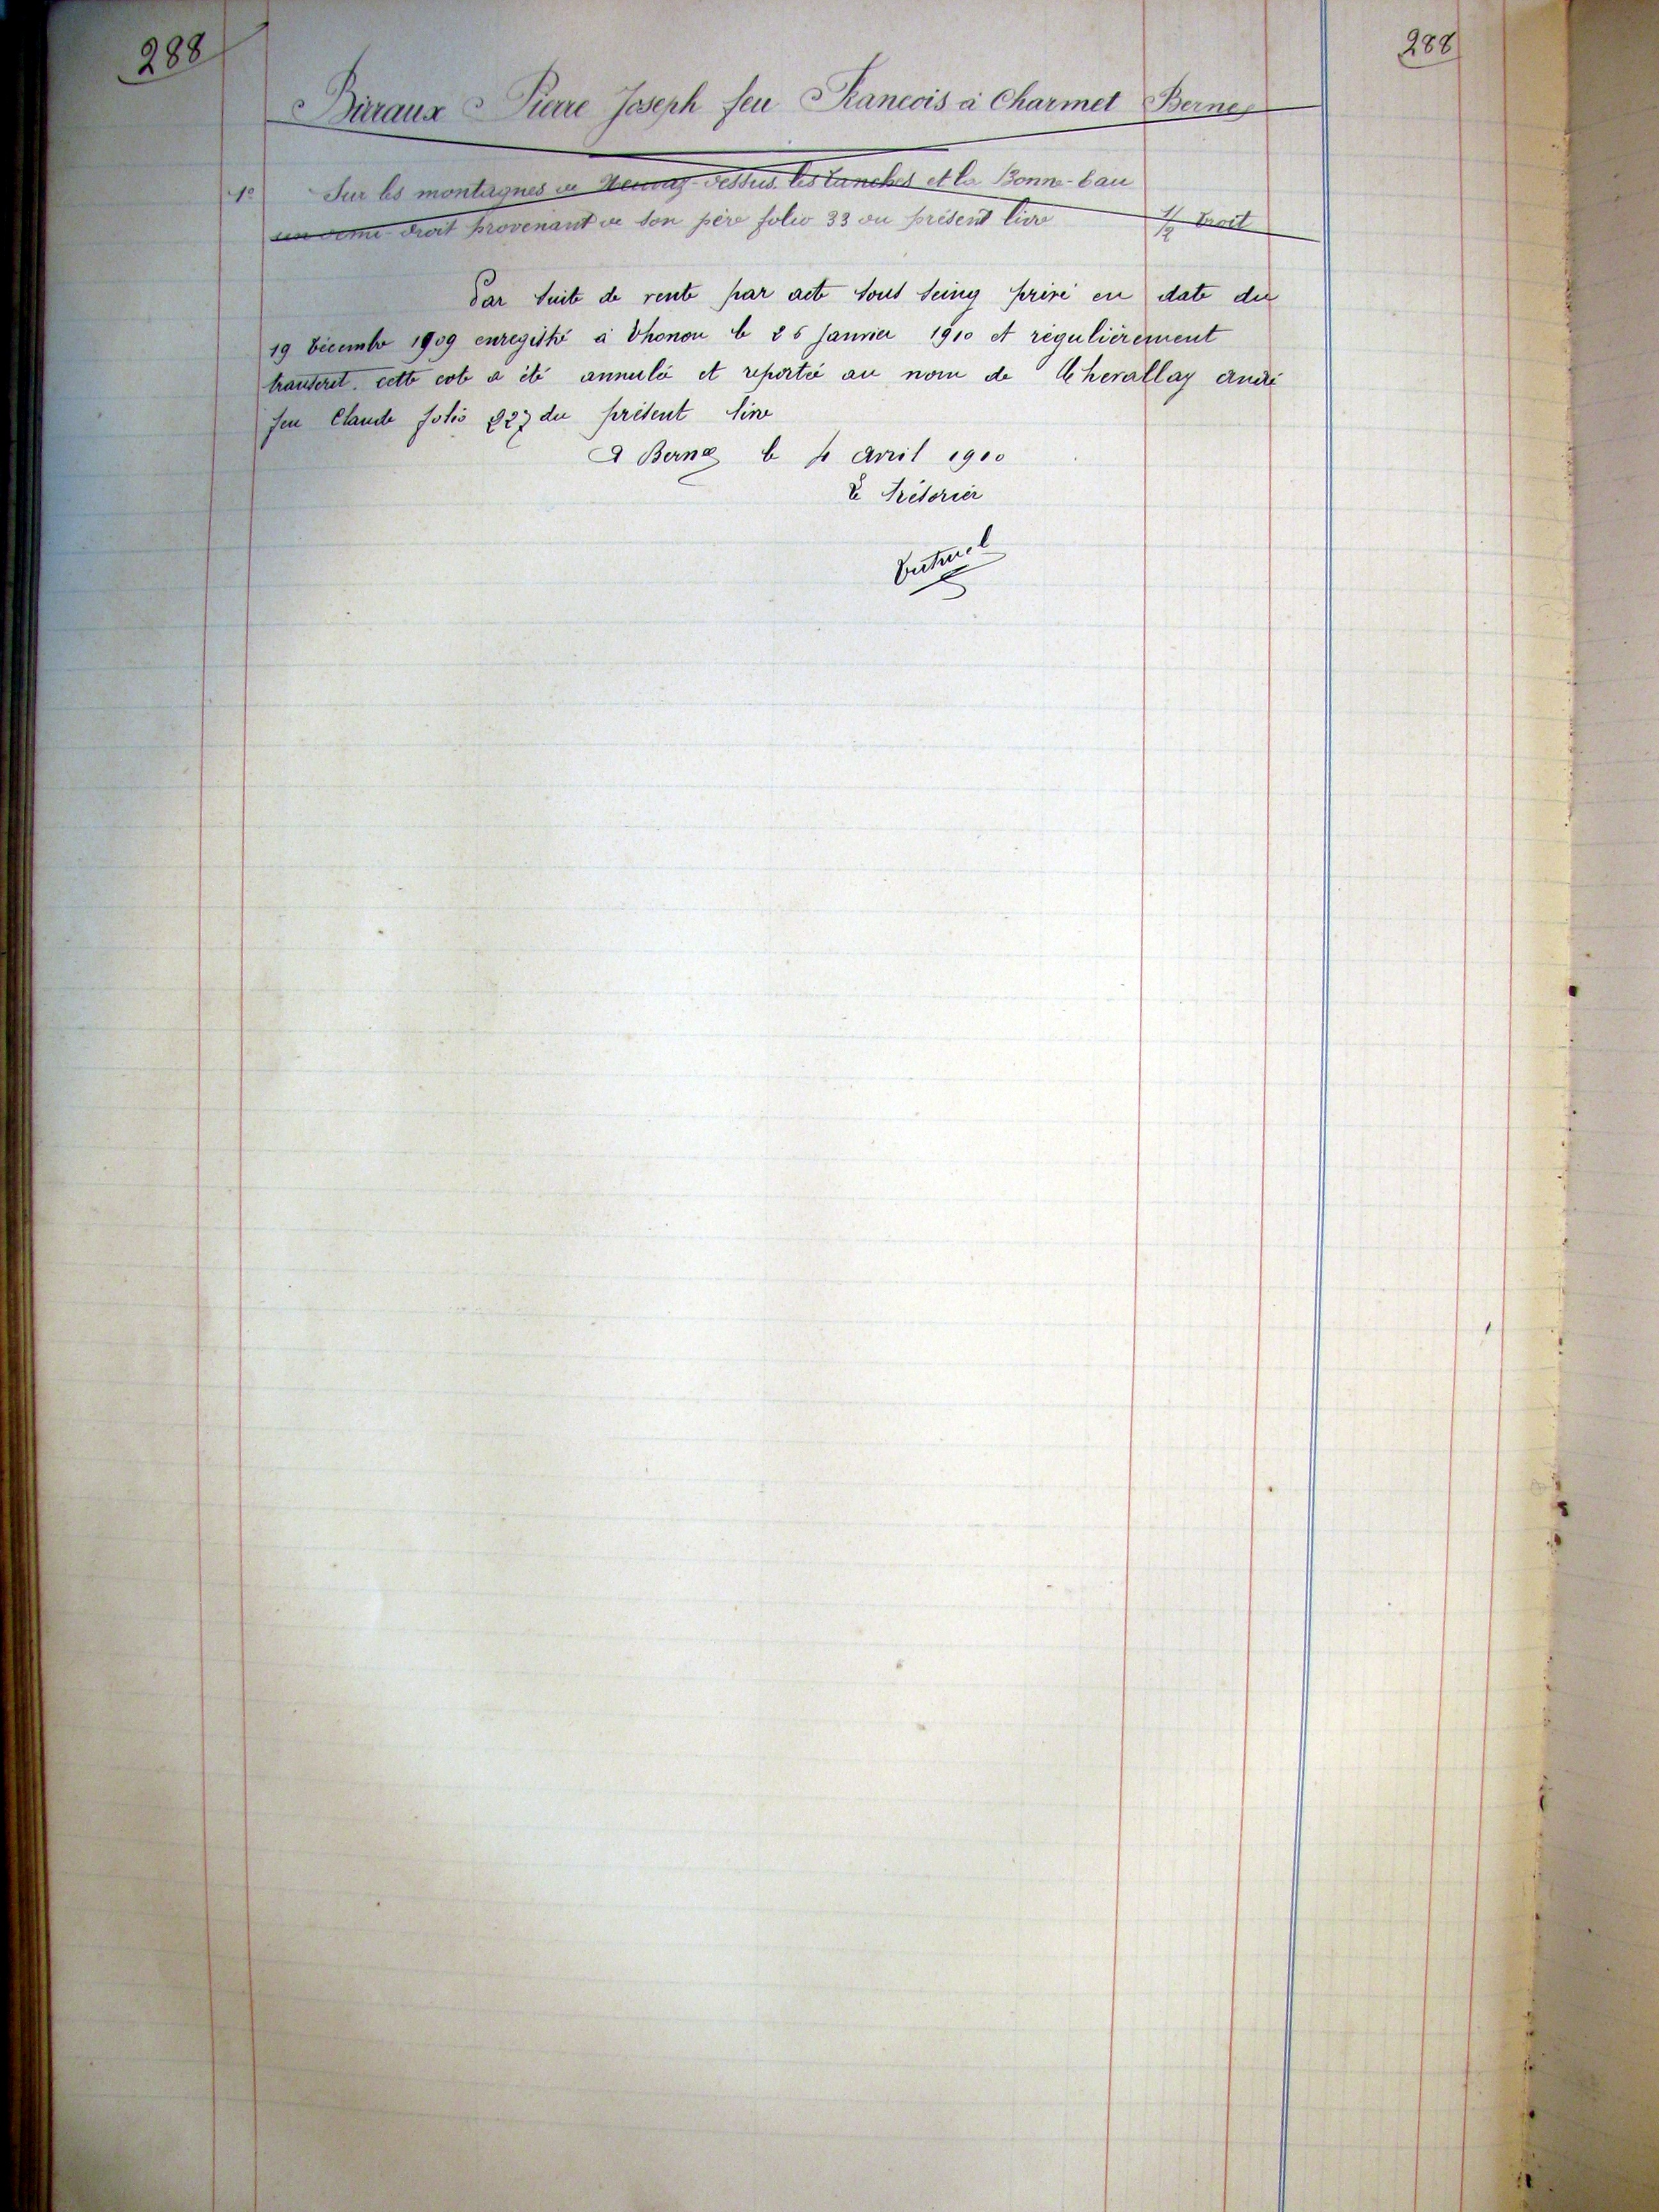 288
288
Birraux Pierre Joseph feu Francois à Charmet Bernex
1° Sur les montagnes de Neuvaz-dessus les Tanches et la Bonne-Eau
un demi-droit provenant de son père folio 33 du présent livre 1/2 Droit
Par suite de vente par acte sous seing privé en date du
19 Décembre 1909 enregistré à Thonon le 26 Janvier 1910 et régulièrement
transcrit. cette cote a été annulée et reportée au nom de Chevallay André
feu Claude folio 227 du présent livre
A Bernex le 4 avril 1910
Le Trésorier